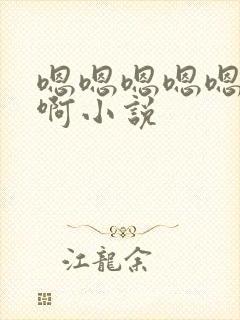 嗯嗯嗯嗯嗯
啊小説
江龍余